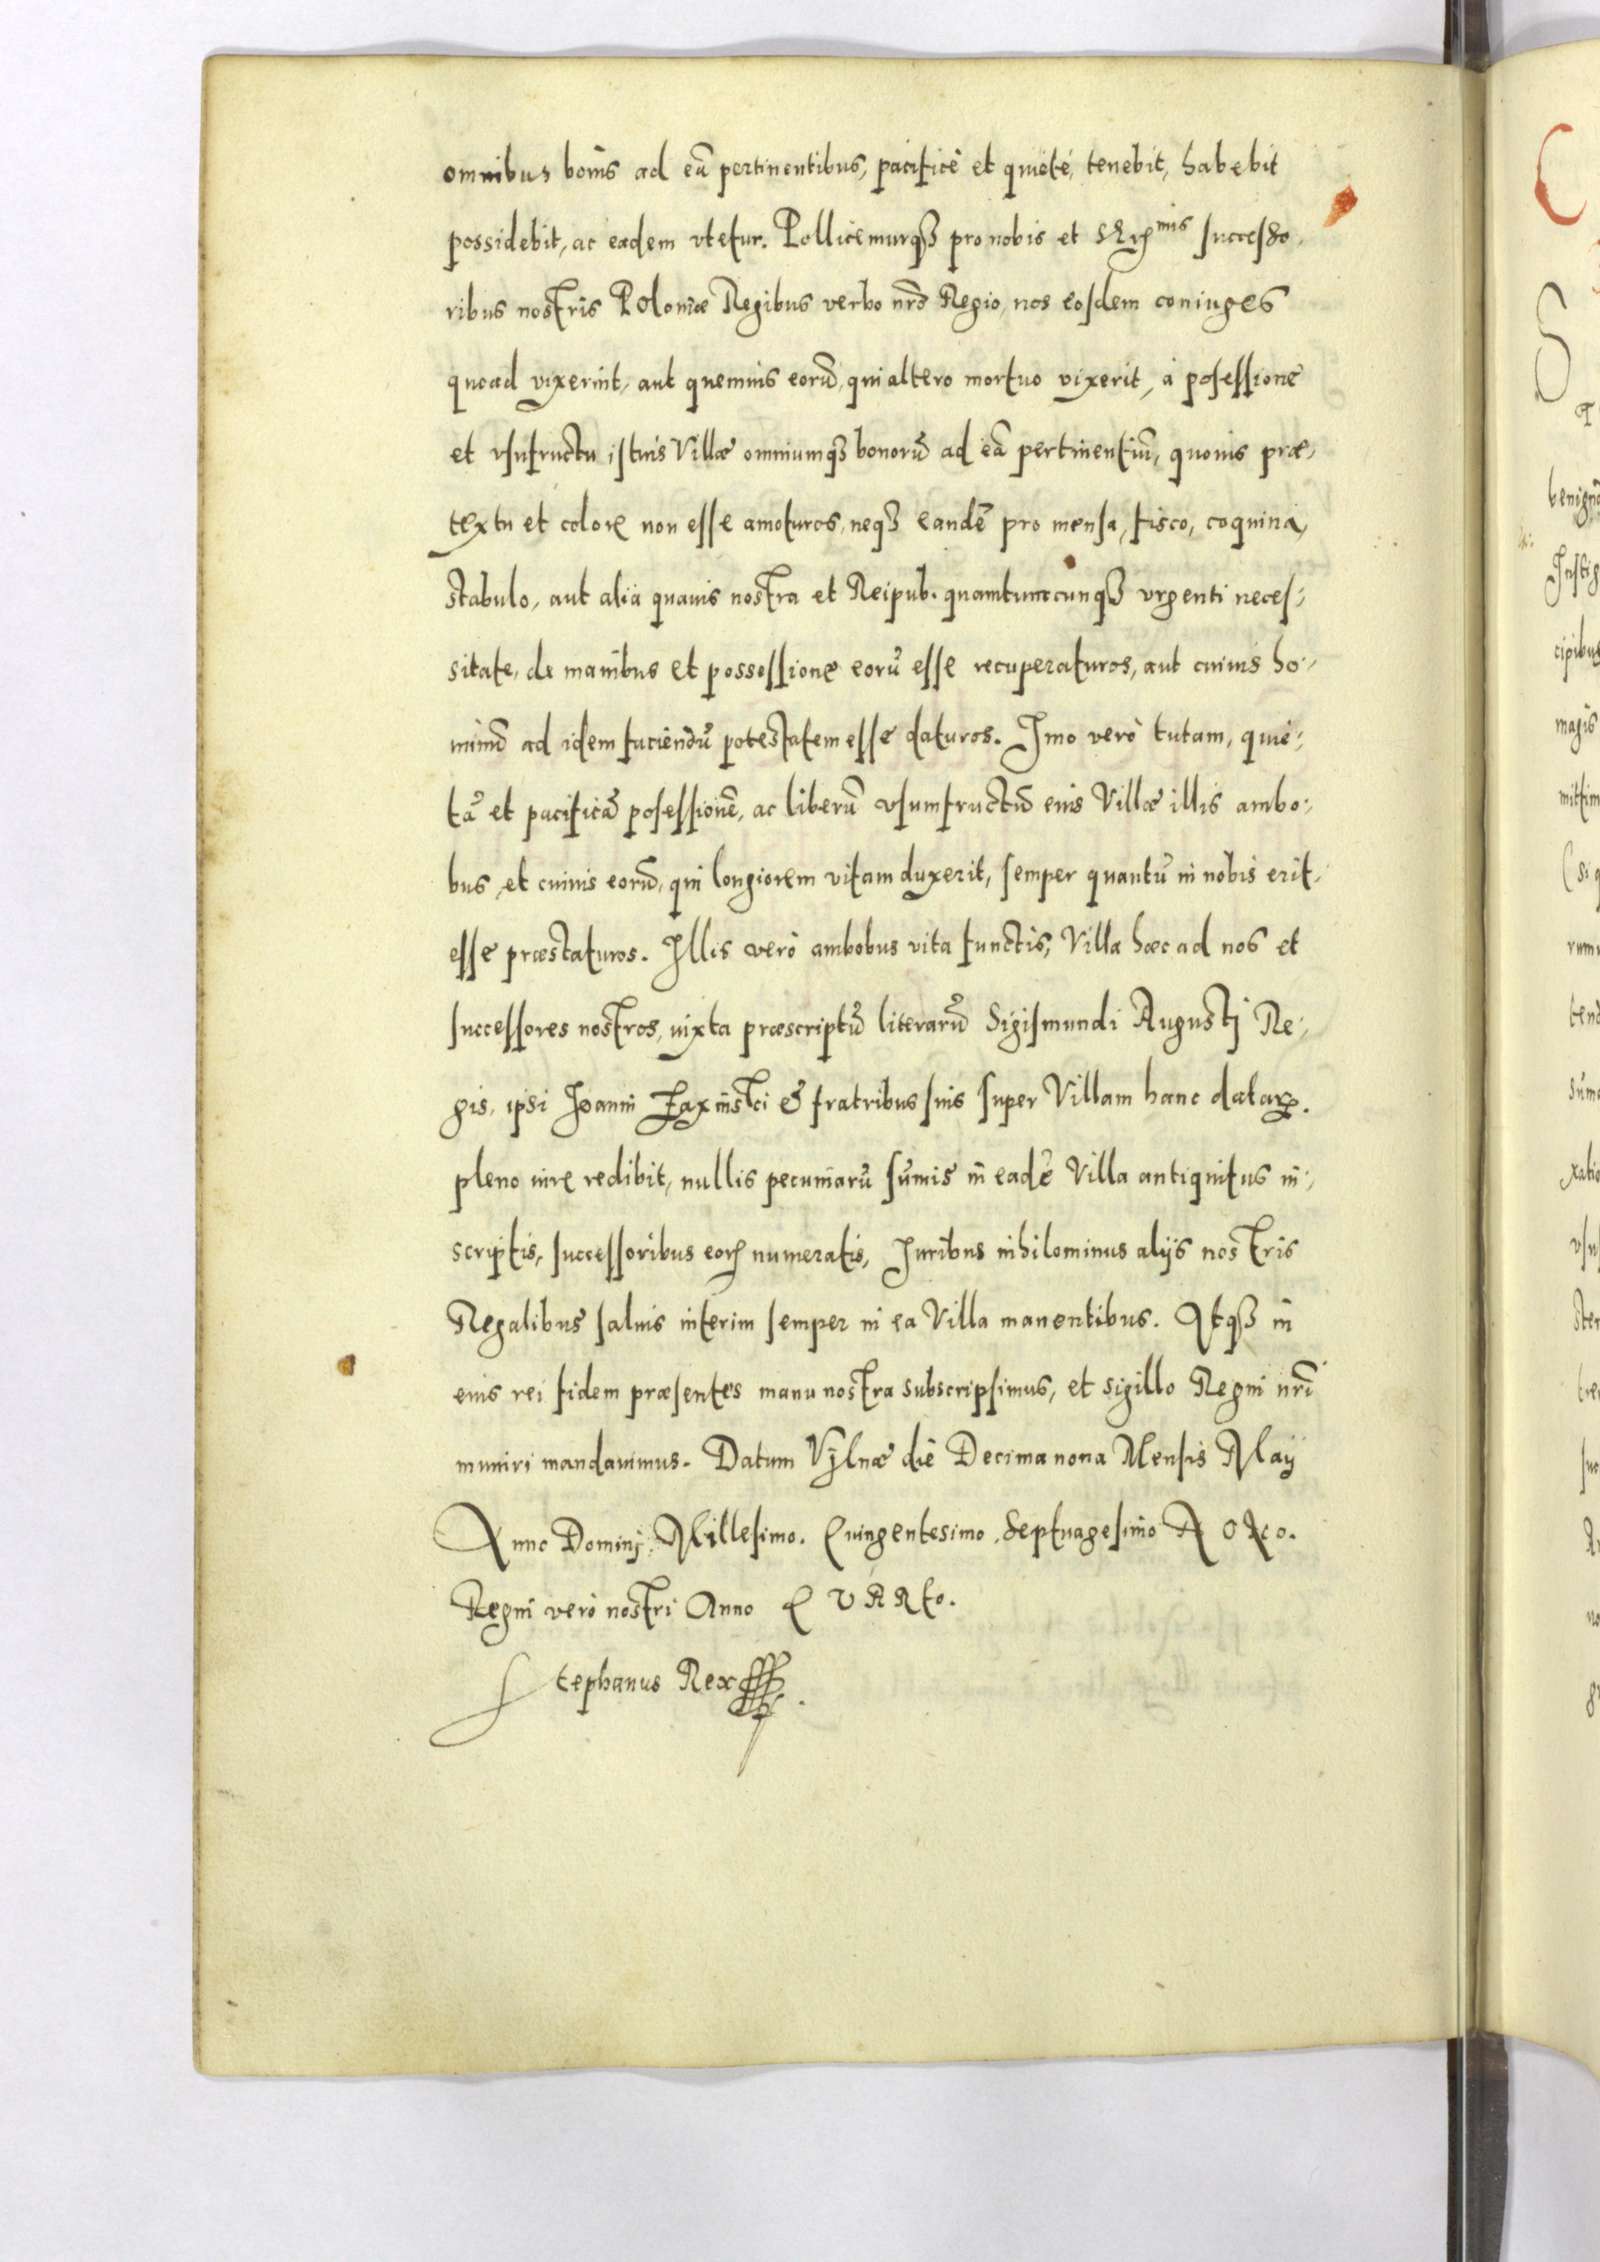 omnibus bonis ad eā pertinentibus, pacificè et quietè, tenebit, habebit
possidebit, ac eadem vtetur. Pollicemurq3 pro nobis et successo,
ribus nostris Poloniæ Regibus verbo nrō Regio, nos eosdem coniuges
quoad vixerint, aut quemuis eorū, qui altero mortuo vixerit, à posessione
et vsufructu istius Villæ omniumq3 bonorū ad eā pertinentiū, quouis præ,
textu et colore non esse amoturos, neq3 eandē pro mensa, fisco, coquina,
stabulo, aut alia quauis nostra et Reipub. quamtumcunq3 vrgenti neces,
sitate, de manibus et possessione eorū esse recuperaturos, aut cuiuis ho,
minū ad idem faciendū potestatem esse daturos. Imo verò tutam, quie,
tā et pacificā posessionē, ac liberū vsumfructū eius Villæ illis ambo,
bus, et cuiuis eorū, qui longiorem vitam duxerit, semper quantū in nobis erit,
esse præstaturos. Illis verò ambobus vita functis, Villa hæc ad nos et
successores nostros, iuxta præscriptū literarū Sigismundi Augustj Re,
gis, ipsi Joanni & fratribus suis super Villam hanc datarꝝ.
pleno iure redibit, nullis pecuniarū sūmis in eadē Villa antiquitus in,
scriptis, successoribus eorꝝ numeratis, Juribus nihilominus alijs nostris
Regalibus saluis interim semper in ea Villa manentibus. Atq3 in
eius rei fidem præsentes manu nostra subscripsimus, et sigillo Regni nrī
muniri mandauimus. Datum Vylnæ die Decima nona Mensis Maij
Anno Dominj, Millesimo. Quingentesimo, Septuagesimo
Regni verò nostri Anno QVARto.
Stephanus Rex
benignæ
cipibus
magis